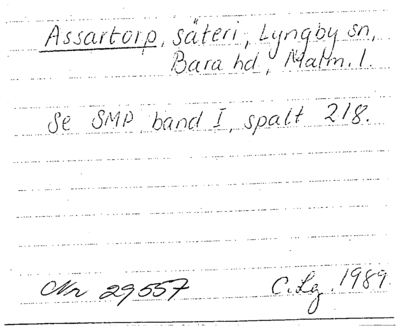 Assartorp, säteri, Lyngby sn,
Bara hd, Malm. l.
Se SMP band I, spalt 218.
Nr 29557 C. Lg. 1989.